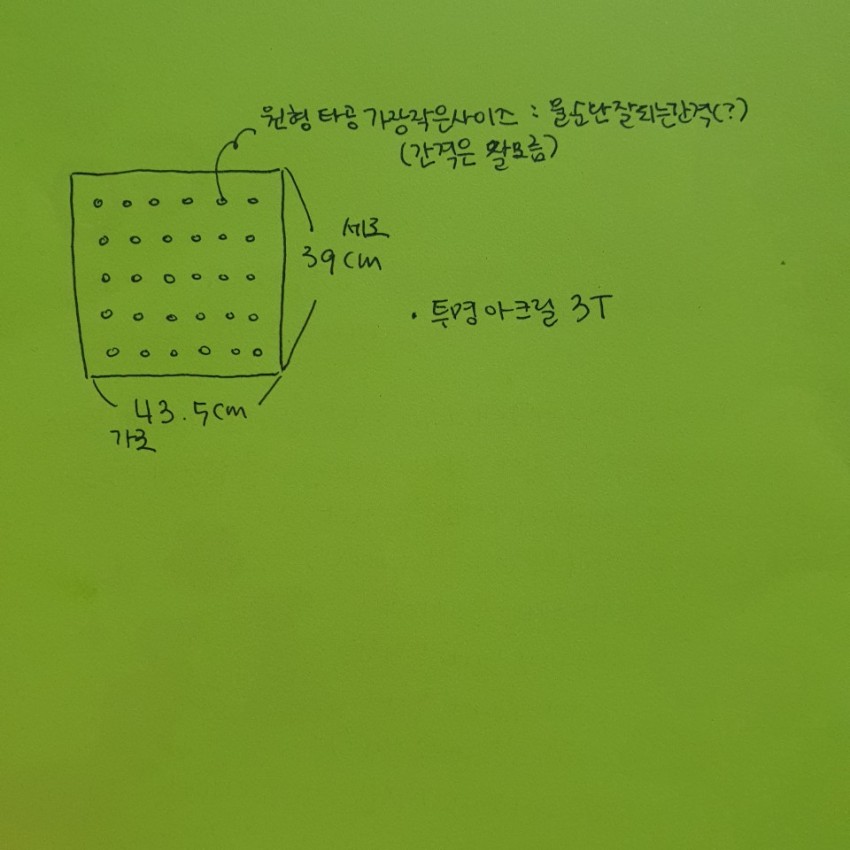 원형 타공 가장작은사이즈 : 물순환잘되는간격(?)
(간격은 잘모름)
세로
39cm
· 투명아크릴 3T
43.5cm
가로